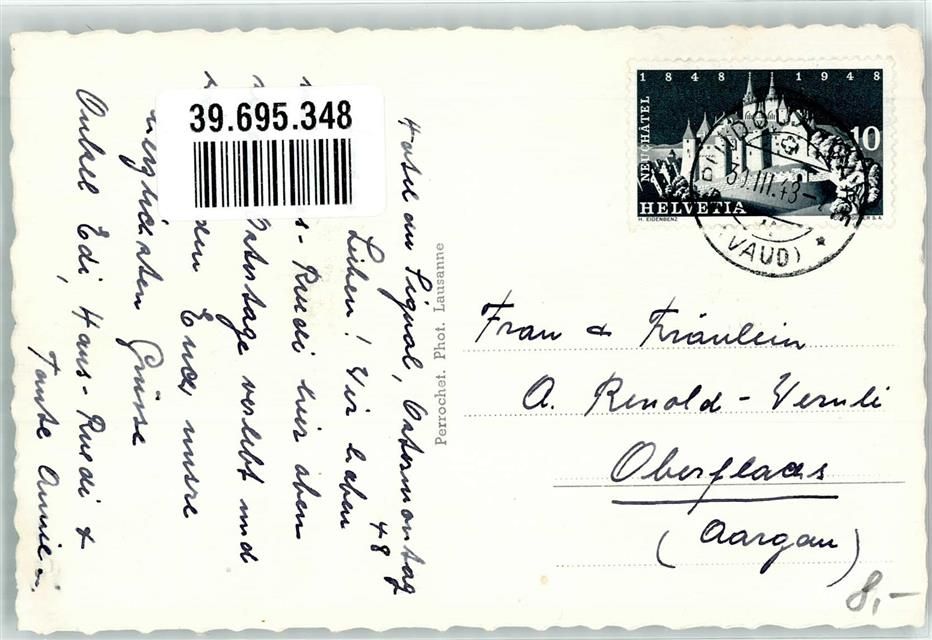 39.695.348
Hotel du Signal, Ostermontag
48
Lieben! Wir haben
s-Ruedi hier oben
Ostertage verlebt und
Euch, unsre
herzlichsten Grüsse
Onkel Edi, Hans-Ruedi &
Tante Annie.
Perrochet. Phot. Lausanne
1848 1948
NEUCHÂTEL
10
HELVETIA
H. EIDENBENZ
(VAUD)
Frau & Fräulein
A. Renold-Wernli
Oberflachs
(Aargau)
8,-